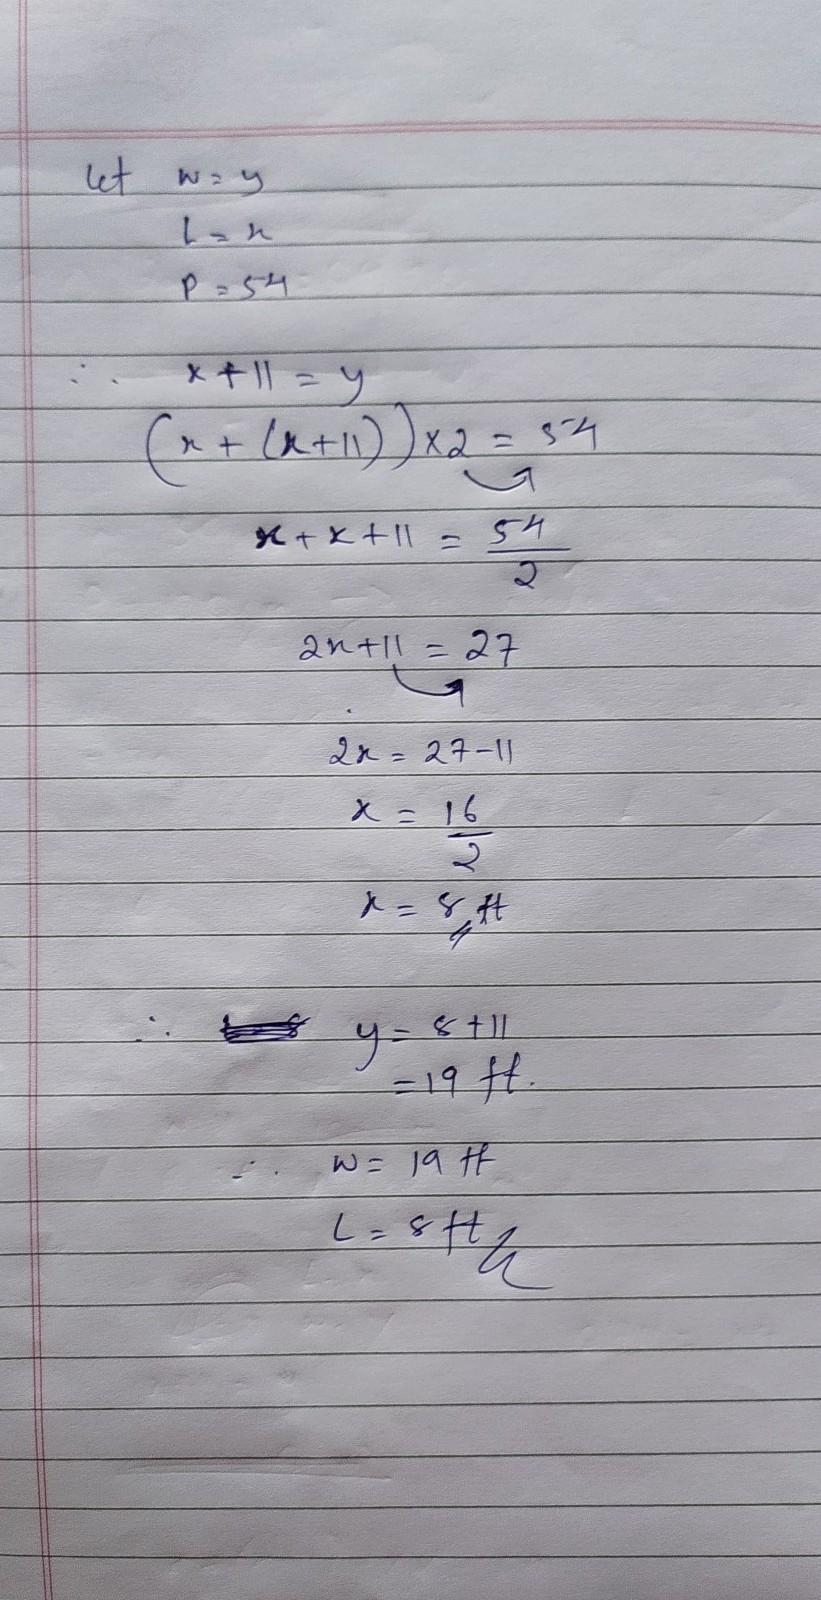 let w = y
L = x
P = 54
∴ x + 11 = y
(x + (x+11)) x2 = 54
x + x + 11 = 54/2
2x+11 = 27
2x = 27-11
x = 16/2
x = 8 ft
∴ y = 8+11
= 19 ft.
∴ w = 19 ft
L = 8 ft